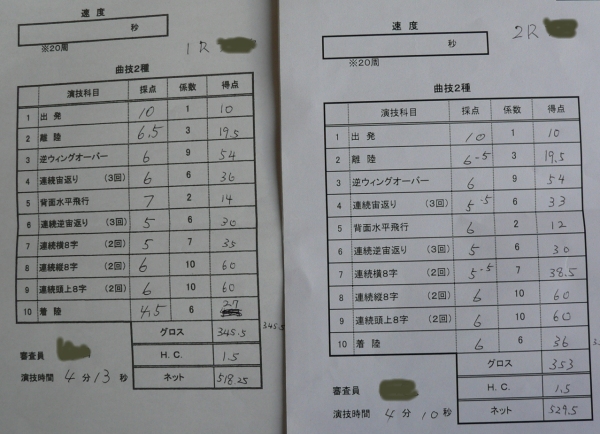 速度
秒
※20周
1R
曲技2種
演技科目 採点 係数 得点
1 出発 10 1 10
2 離陸 6.5 3 19.5
3 逆ウィングオーバー 6 9 54
4 連続宙返り (3回) 6 6 36
5 背面水平飛行 7 2 14
6 連続逆宙返り (3回) 5 6 30
7 連続横8字 (2回) 5 7 35
8 連続縦8字 (2回) 6 10 60
9 連続頭上8字 (2回) 6 10 60
10 着陸 4.5 6 27
グロス 345.5 345.5
審査員 H.C. 1.5
演技時間 4分13秒 ネット 518.25
速度
秒
※20周
2R
曲技2種
演技科目 採点 係数 得点
1 出発 10 1 10
2 離陸 6.5 3 19.5
3 逆ウィングオーバー 6 9 54
4 連続宙返り (3回) 5.5 6 33
5 背面水平飛行 6 2 12
6 連続逆宙返り (3回) 5 6 30
7 連続横8字 (2回) 5.5 7 38.5
8 連続縦8字 (2回) 6 10 60
9 連続頭上8字 (2回) 6 10 60
10 着陸 6 6 36
グロス 353
審査員 H.C. 1.5
演技時間 4分10秒 ネット 529.5